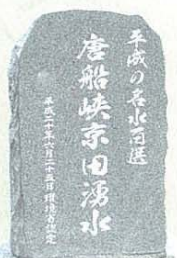 平成の名水百選
唐船峡京田湧水
平成二十年六月二十五日 環境省認定